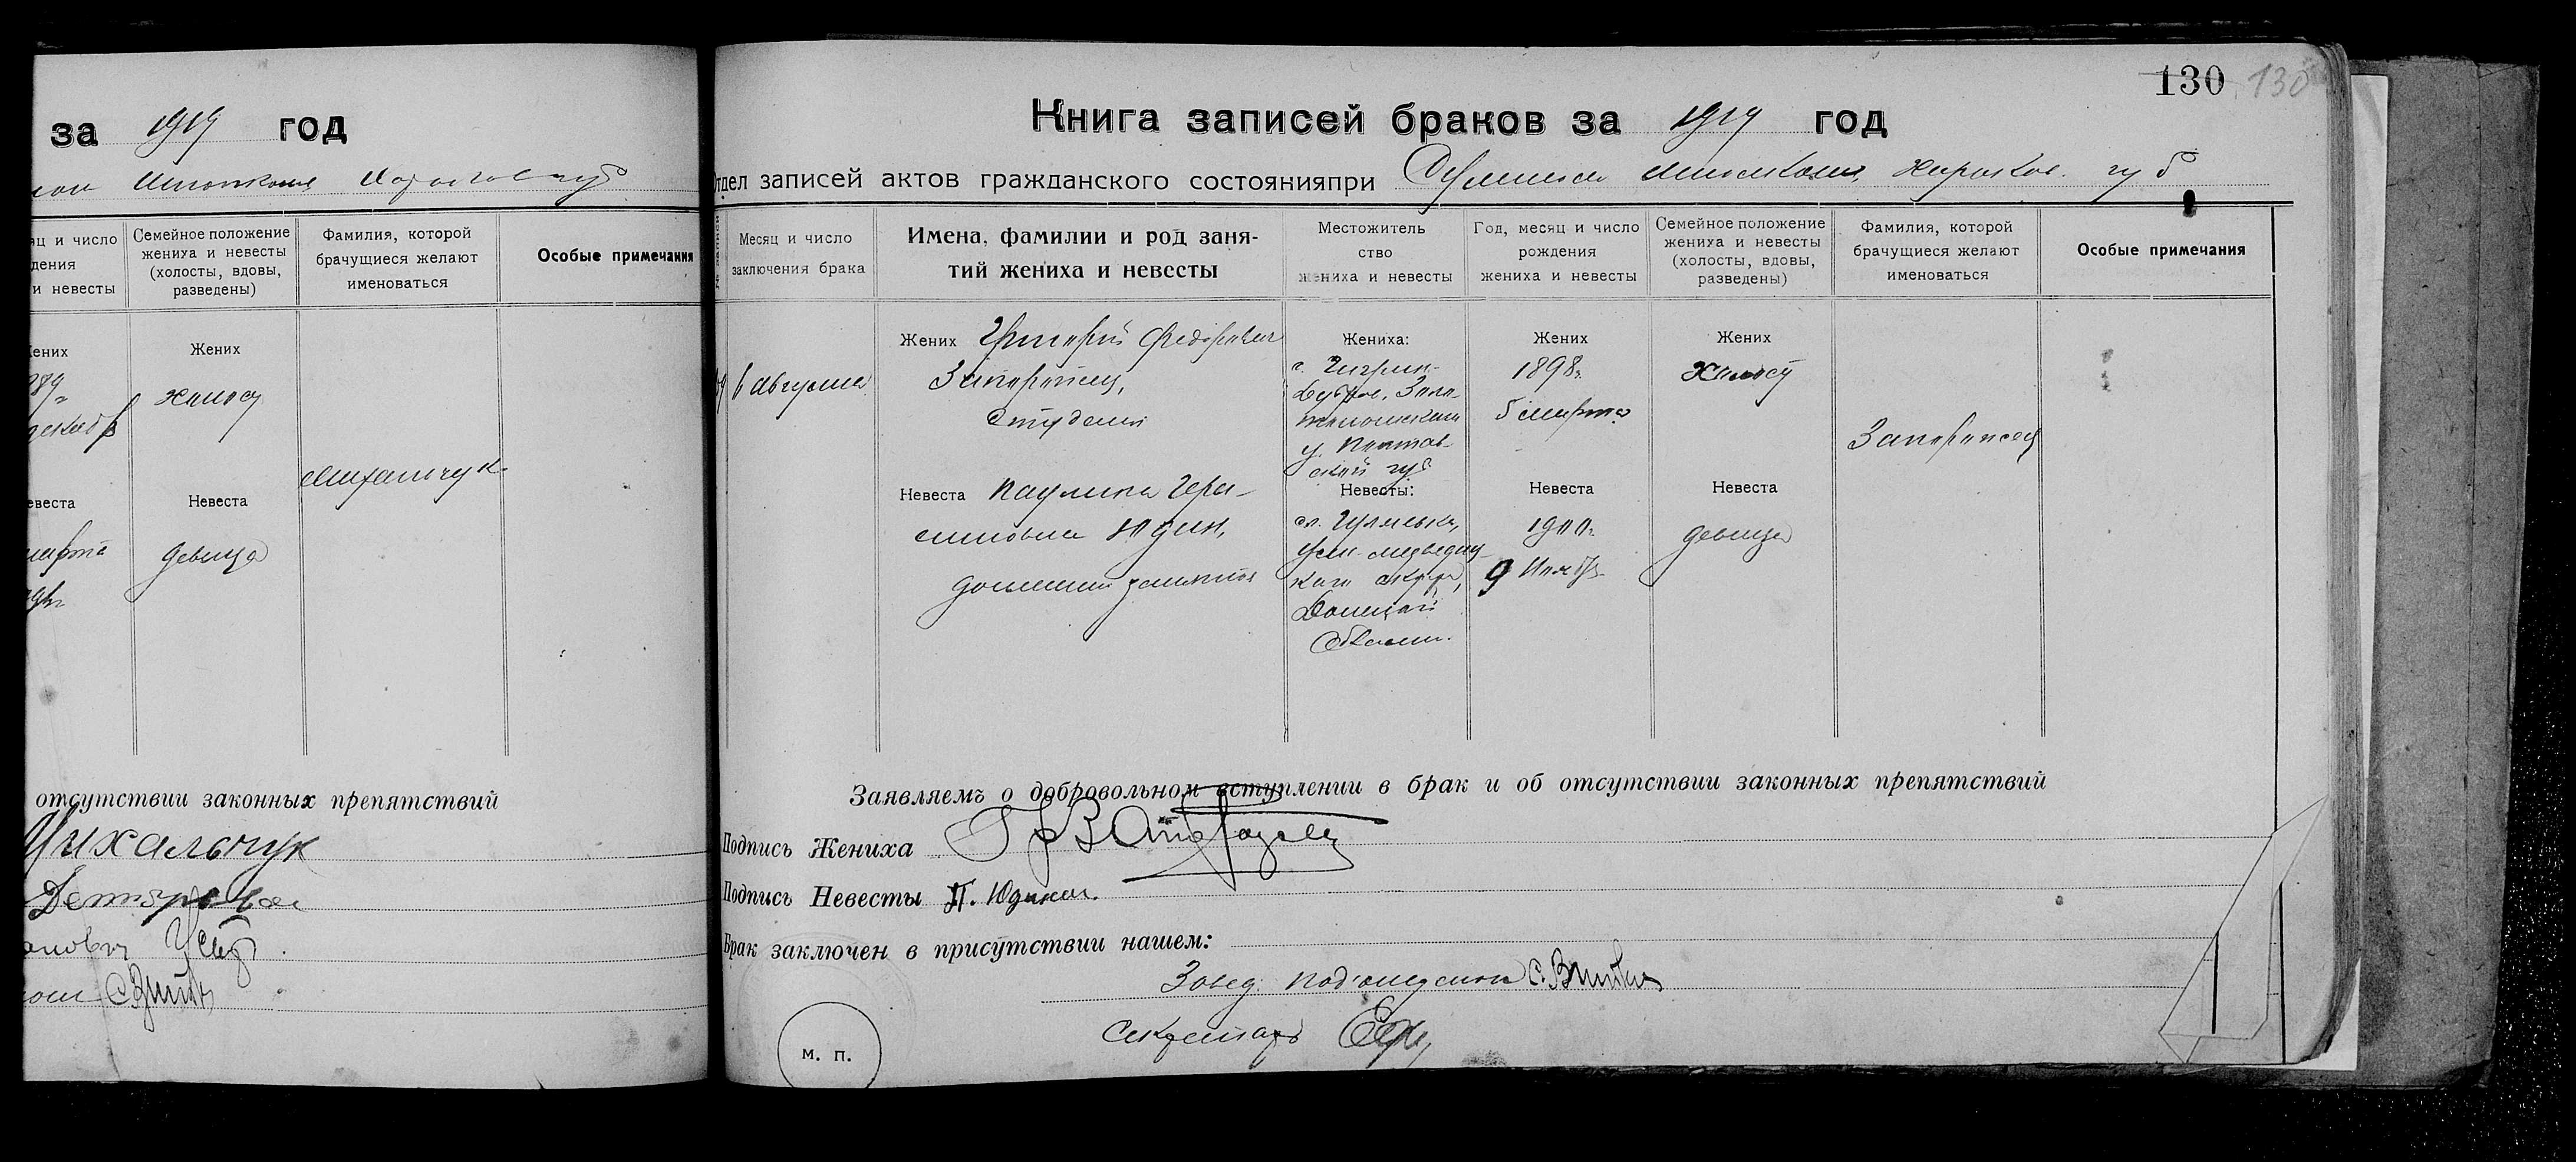 за 1919 год
яц и число
дения
и невесты
Семейное положение
жениха и невесты
(холосты, вдовы,
разведены)
Фамилия, которой
брачущиеся желают
именоваться
Особые примечания
Жених
холост
Михальчук
евеста
Невеста
марта
девица
отсутствии законных препятствий
Михальчук
130 130
Книга записей браков за 1919 год
Отдел записей актов гражданского состоянияпри Харьков. губ
Месяц и число
заключения брака
Имена, фамилии и род заня-
тий жениха и невесты
Местожитель
ство
жениха и невесты
Год, месяц и число
рождения
жениха и невесты
Семейное положение
жениха и невесты
(холосты, вдовы,
разведены)
Фамилия, которой
брачущиеся желают
именоваться
Особые примечания
6 августа
Жених Григорий Федорович
Запорожец,
студент
Невеста Паулина Гера-
симовна Юдин,
домашн. занятия
Жениха:
с. Чигрин-
Дуброва, Золо-
тоношского
у. Полтав-
ской губ
Невесты:
сл.
Усть-медведиц-
кого округа,
Донецкой
Области.
Жених
1898г.
5 марта
Невеста
1900г.
9 Ноябр.
Жених
холост
Невеста
девица
Запорожец
Заявляемъ о добровольном вступлении в брак и об отсутствии законных препятствий
Подпись Жениха Гр Запорожец
Подпись Невесты П. Юдина.
Брак заключен в присутствии нашем:
Завед. подотделом
Секретарь
м. п.